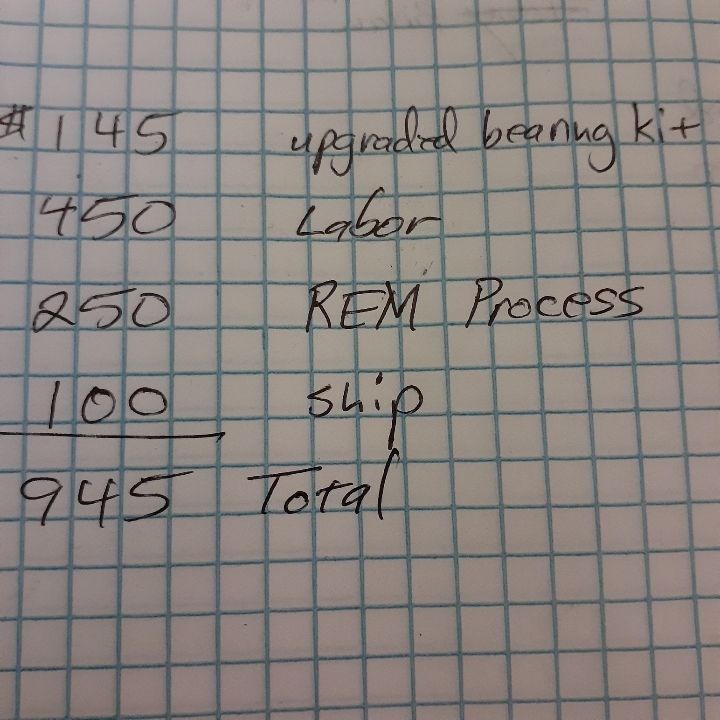 $ 145 upgraded bearing kit
450 Labor
250 REM Process
100 ship
945 Total